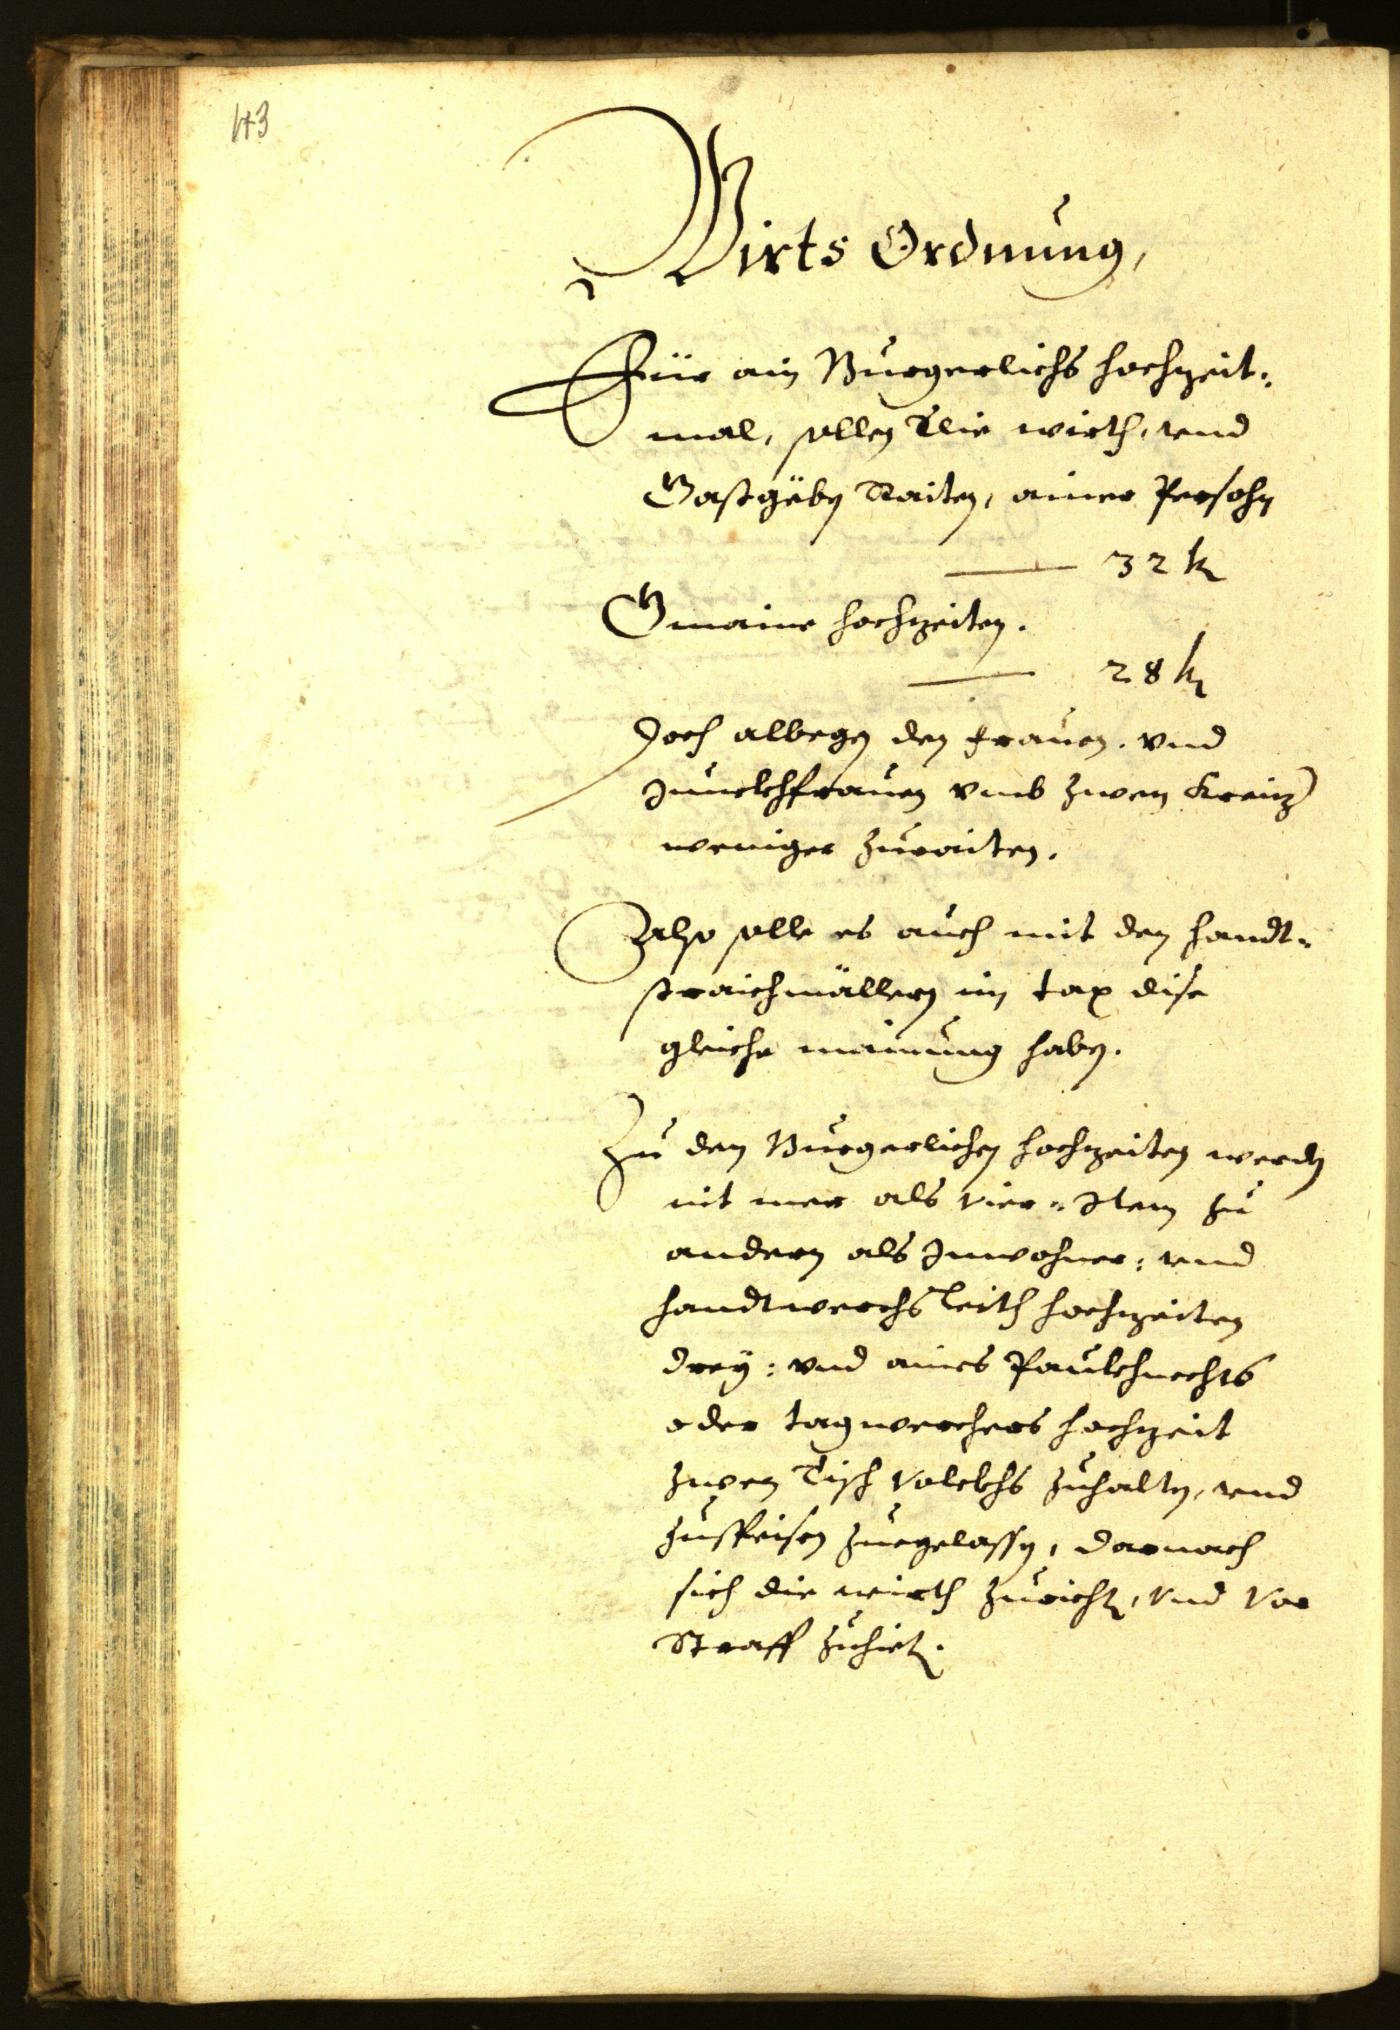 143
Wirts Ordnung,
Für ain Burgerlichs hochzeit=
mal, sollen die wirth, vnd
Gastgäbn Raiten, ainer Persohn
32 k
Gmaine hochzeiten.
28 k
Joch albegen den frauen, vnd
Junckhfrauen vmb zwen Kreiz
weniger zuraiten.
Also solle es auch mit den handt=
straichmällern im tax dise
gleiche mainung haben.
Zu den Burgerlichen hochzeiten werden
nit mer als vier, Item zu
andern als Inwohner: vnd
handtwerchs leith hochzeiten
drey: vnd aines Pauknechts
oder tagwerchers hochzeit
zwen Tisch volckhs zuhalten, vnd
zuspeisen zuegelassen, darnach
sich die wirth zuricht, vnd vor
Straff zuhiet.